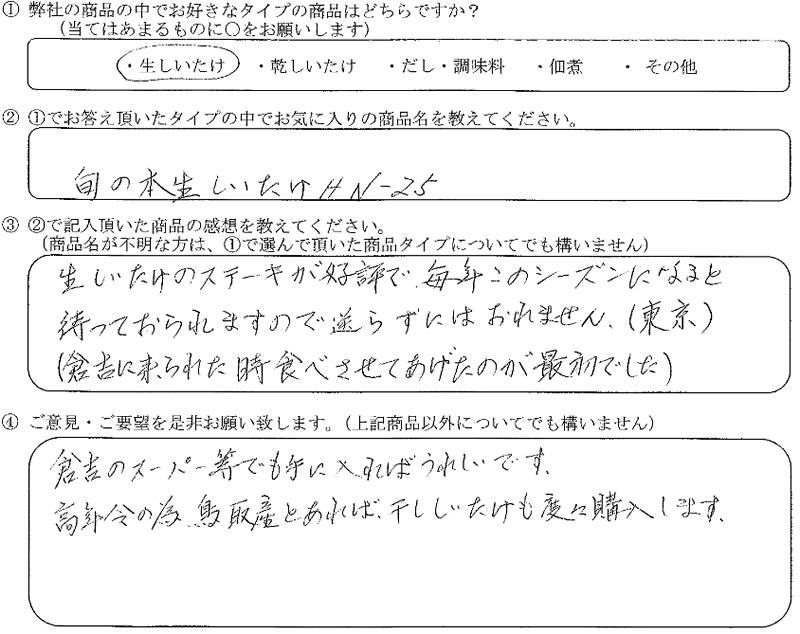 ① 弊社の商品の中でお好きなタイプの商品はどちらですか？
（当てはあまるものに○をお願いします）
・生しいたけ ・乾しいたけ ・だし・調味料 ・佃煮 ・ その他
② ①でお答え頂いたタイプの中でお気に入りの商品名を教えてください。
旬の本生しいたけHN-25
③ ②で記入頂いた商品の感想を教えてください。
（商品名が不明な方は、①で選んで頂いた商品タイプについてでも構いません）
生しいたけのステーキが好評で、毎年このシーズンになると
待っておられますので送らずにはおれません、（東京）
（倉吉に来られた時食べさせてあげたのが最初でした）
④ ご意見・ご要望を是非お願い致します。（上記商品以外についてでも構いません）
倉吉のスーパー等でも手に入ればうれしいです、
高年令の為、鳥取産とあれば、干ししいたけも度々購入します、